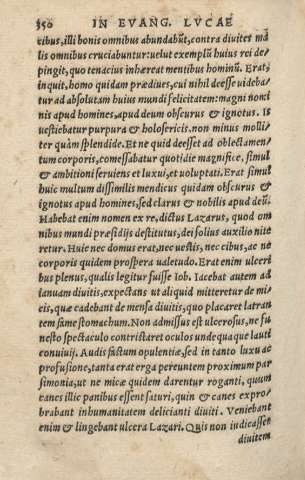 350 IN EVANG. LVCAE
cibus, illi bonis omnibus abundabũt, contra diuites ma
lis omnibus cruciabuntur: uelut exemplũ huius rei de-
pingit, quo tenacius inhæreat mentibus hominũ. Erat,
inquit, homo quidam prædiues, cui nihil deesse uideba-
tur ad absolutam huius mundi felicitatem: magni nomi
nis apud homines, apud deum obscurus & ignotus. Is
uestiebatur purpura & holosericis. non minus molli-
ter quàm splendide. Et ne quid deesset ad oblectamen-
tum corporis, comessabatur quotidie magnifice, simul
& ambitioni seruiens et luxui, et uoluptati. Erat simul
huic multum dissimilis mendicus quidam obscurus &
ignotus apud homines, sed clarus & nobilis apud deũ.
Habebat enim nomen ex re, dictus Lazarus, quod om
nibus mundi præsidijs destitutus, dei solius auxilio nite
retur. Huic nec domus erat, nec uestis, nec cibus, ac ne
corporis quidem prospera ualetudo. Erat enim ulceri
bus plenus, qualis legitur fuisse Iob. Iacebat autem ad
ianuam diuitis, expectans ut aliquid mitteretur de mi-
cis, quæ cadebant de mensa diuitis, quo placaret latran
tem fame stomachum. Non admissus est ulcerosus, ne fu
nesto spectaculo contristaret oculos undequaque lauti
conuiuij. Audis fastum opulentiæ, sed in tanto luxu ac
profusione, tanta erat erga pereuntem proximum par
simonia, ut ne micæ quidem darentur roganti, quum
canes illic panibus essent saturi, quin & canes expro-
brabant inhumanitatem delicianti diuiti. Veniebant
enim & lingebant ulcera Lazari. Quis non iudicasset
diuitem